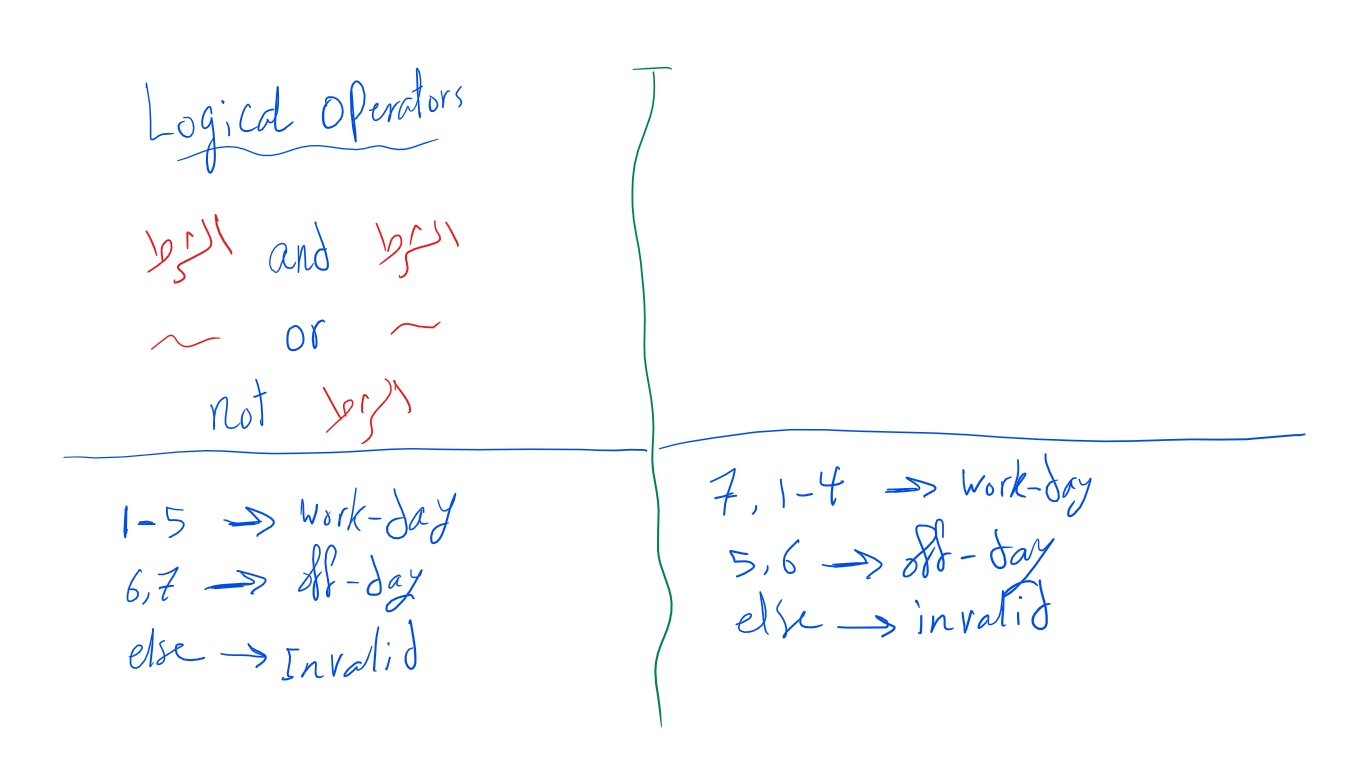 Logical operators
الشرط and الشرط
or
not الشرط
1-5 → work-day
6,7 → off-day
else → Invalid
7, 1-4 → work-day
5,6 → off-day
else → invalid